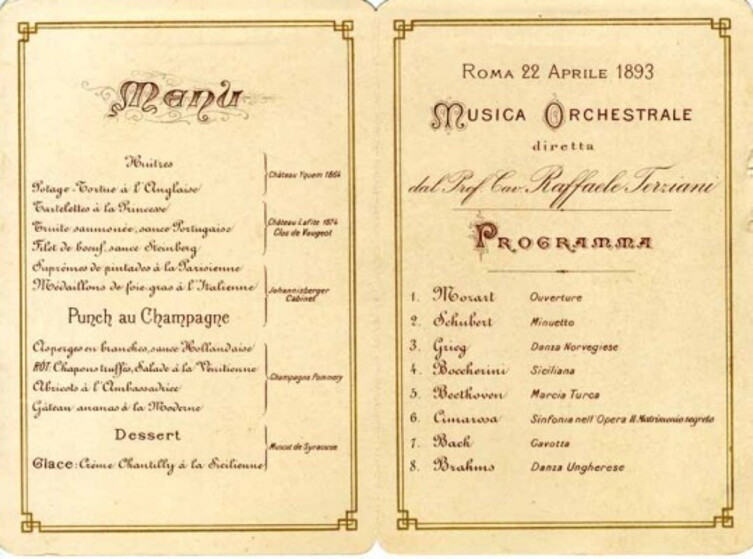 Menu
Huîtres
Potage-Tortue à l'Anglaise
Château Yquem 1864
Tartelettes à la Princesse
Truite saumonée, sauce Portugaise
Filet de boeuf, sauce Steinberg
Château Lafite 1874
Clos de Vougeot
Suprêmes de pintades à la Parisienne
Médaillons de foie-gras à l'Italienne
Punch au Champagne
Johannisberger
Cabinet
Asperges en branches, sauce Hollandaise
RÔT: Chapons truffés, Salade à la Vénitienne
Abricots à l'Ambassadrice
Gâteau ananas à la Moderne
Champagne Pommery
Dessert
Glace: Crème Chantilly à la Sicilienne
Muscat de Syracuse
Roma 22 Aprile 1893
Musica Orchestrale
diretta
dal Prof. Cav. Raffaele Terziani
Programma
1. Mozart Ouverture
2. Schubert Minuetto
3. Grieg Danza Norvegiese
4. Boccherini Siciliana
5. Beethoven Marcia Turca
6. Cimarosa Sinfonia nell'Opera Il Matrimonio segreto
7. Bach Gavotta
8. Brahms Danza Ungherese